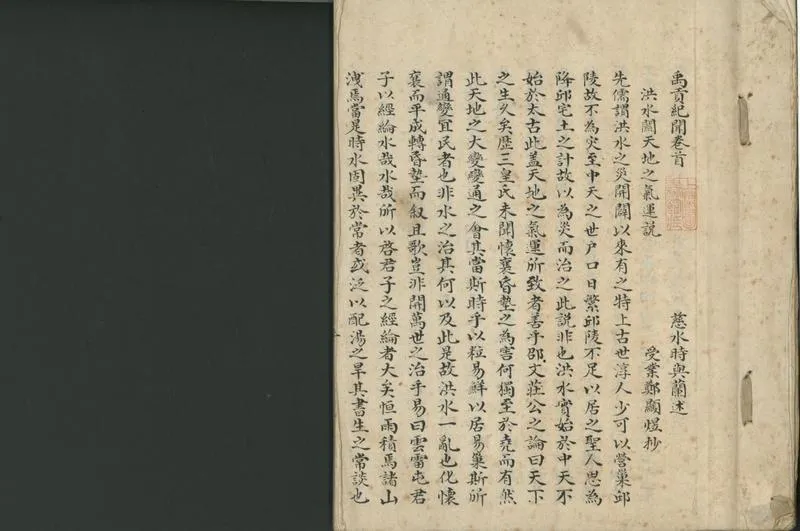 禹貢紀聞卷首
慈水時與蘭述
洪水關天地之氣運說
受業鄭顯煜抄
先儒謂洪水之災開闢以來有之特上古世淳人少可以營巢邱
陵故不為災至中天之世戶口日繁邱陵不足以居之聖人思為
降邱宅土之計故以為災而治之此說非也洪水實始於中天不
始於太古此蓋天地之氣運所致者善乎邵文莊公之論曰天下
之生久矣歷三皇氏未聞懷襄昏墊之為害何獨至於堯而有然
此天地之大變變通之會其當斯時乎以粒易鮮以居易巢斯所
謂通變宜民者也非水之治其何以及此是故洪水一亂也化懷
襄而平成轉昏墊而叙且歌豈非開萬世之治乎易曰雲雷屯君
子以經綸水哉水哉所以啓君子之經綸者大矣恒雨積焉諸山
洩焉當是時水固異於常者或泛以配湯之旱其書生之常談也